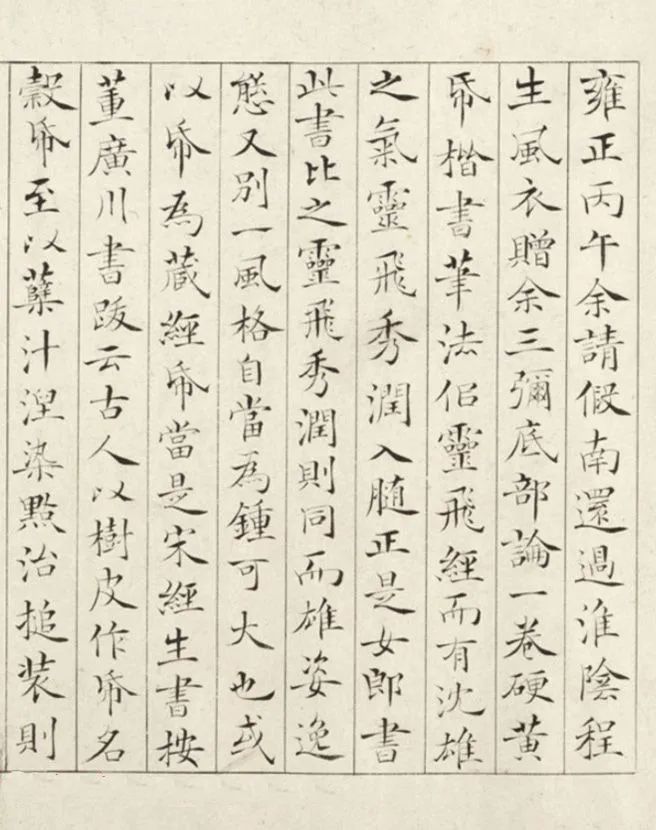 雍正丙午余請假南還過淮陰程
生風衣贈余三彌底部論一卷硬黃
帋楷書筆法侣靈飛經而有沈雄
之氣靈飛秀潤入髄正是女郎書
此書比之靈飛秀潤則同而雄姿逸
態又别一風格自當為鍾可大也或
以帋為蔵經帋當是宋經生書按
董廣川書跋云古人以樹皮作帋名
穀帋至以蘖汁涅染㸃治搥装則